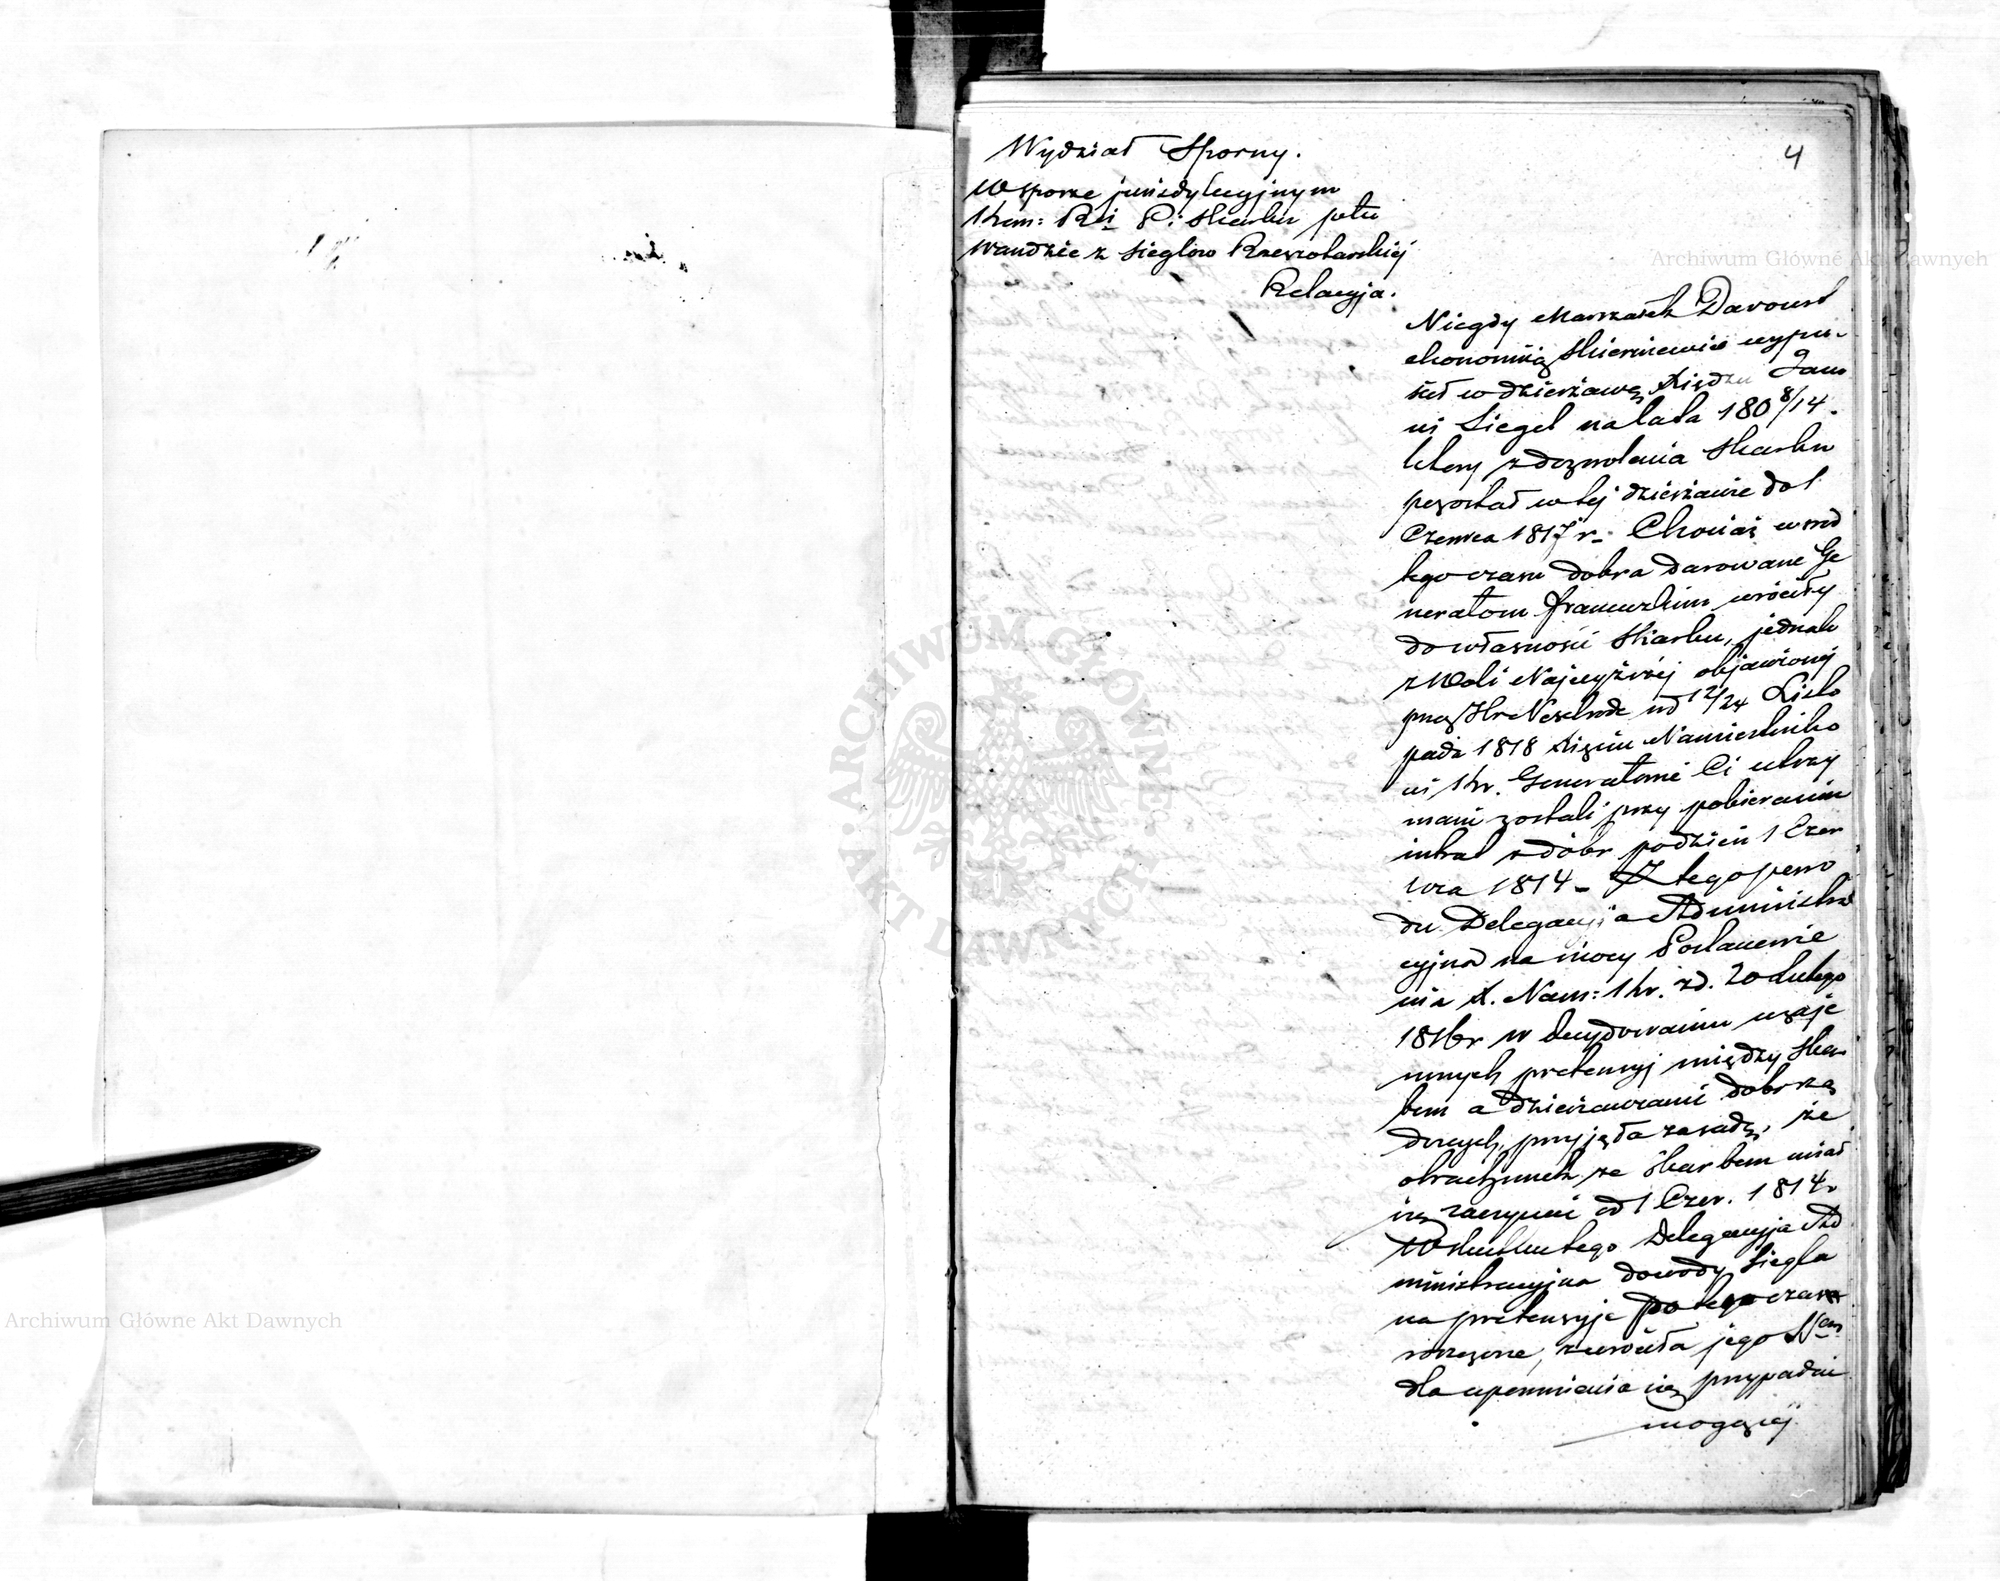 4
Wydział Sporny.
W sporze jurisdykcyjnym
Kom: Rzi Pi Skarbu ptu
Wandzie z Sieglow Rzeszotarskiej
Relacyja.
Niegdy Marszałek Davoust
ekonomiią Skierniewice wypu-
ścił w dzierżawę Księdzu Jano
wi Siegel na lata 180 8/14.
który z dozwolenia Skarbu
pozostał w tej dzierżawie do 1
Czerwca 1817 r. Chociaż wśrod
tego czasu dobra darowane Ge
nerałom francuzkim wróciły
do własności Skarbu, jednak
z Woli Najwyższej objawionej
przez Hr Nesselrode od 12/24 Listo
pada 1818 Xięciu Namiestniko
wi Kr. Generałowie Ci utrzy
mani zostali przy pobieraniu
intrat z dóbr po dzień 1 Czer
wca 1814 – Z tego powo
du Delegacyja Administra
cyjna na mocy Postanowie
nia X. Nam: Kr. zd. 20 Lutego
1816 r w decydowaniu wzaje
mnych pretensyj między Skar
bem a dzierżawcami dobr rzą
dowych, przyjęła zasadę, że
obrachunek ze Skarbem miał
się zaczynać od 1 Czer. 1814.
W skutku tego Delegacyja Ad
ministracyjna dowody Siegla
na pretensyje po tego czasu
rozciągnione, zwróciła jego
dla upomnienia się przypadać
mogącej
Archiwum Główne Akt Dawnych
Archiwum Główne Akt Dawnych
ARCHIWUM GŁÓWNE AKT DAWNYCH